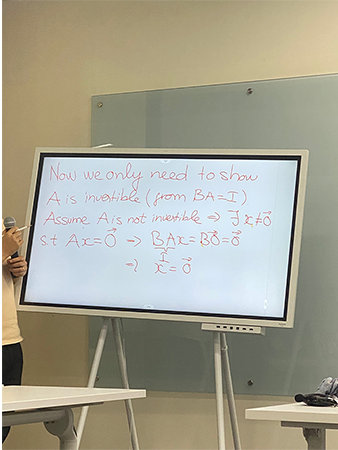 Now we only need to show
A is invertible (from BA=I)
Assume A is not invertible ⇒ ∃ x≠0⃗
s.t Ax=0⃗ → BAx=B0⃗=0⃗
I
⇒ x⃗=0⃗